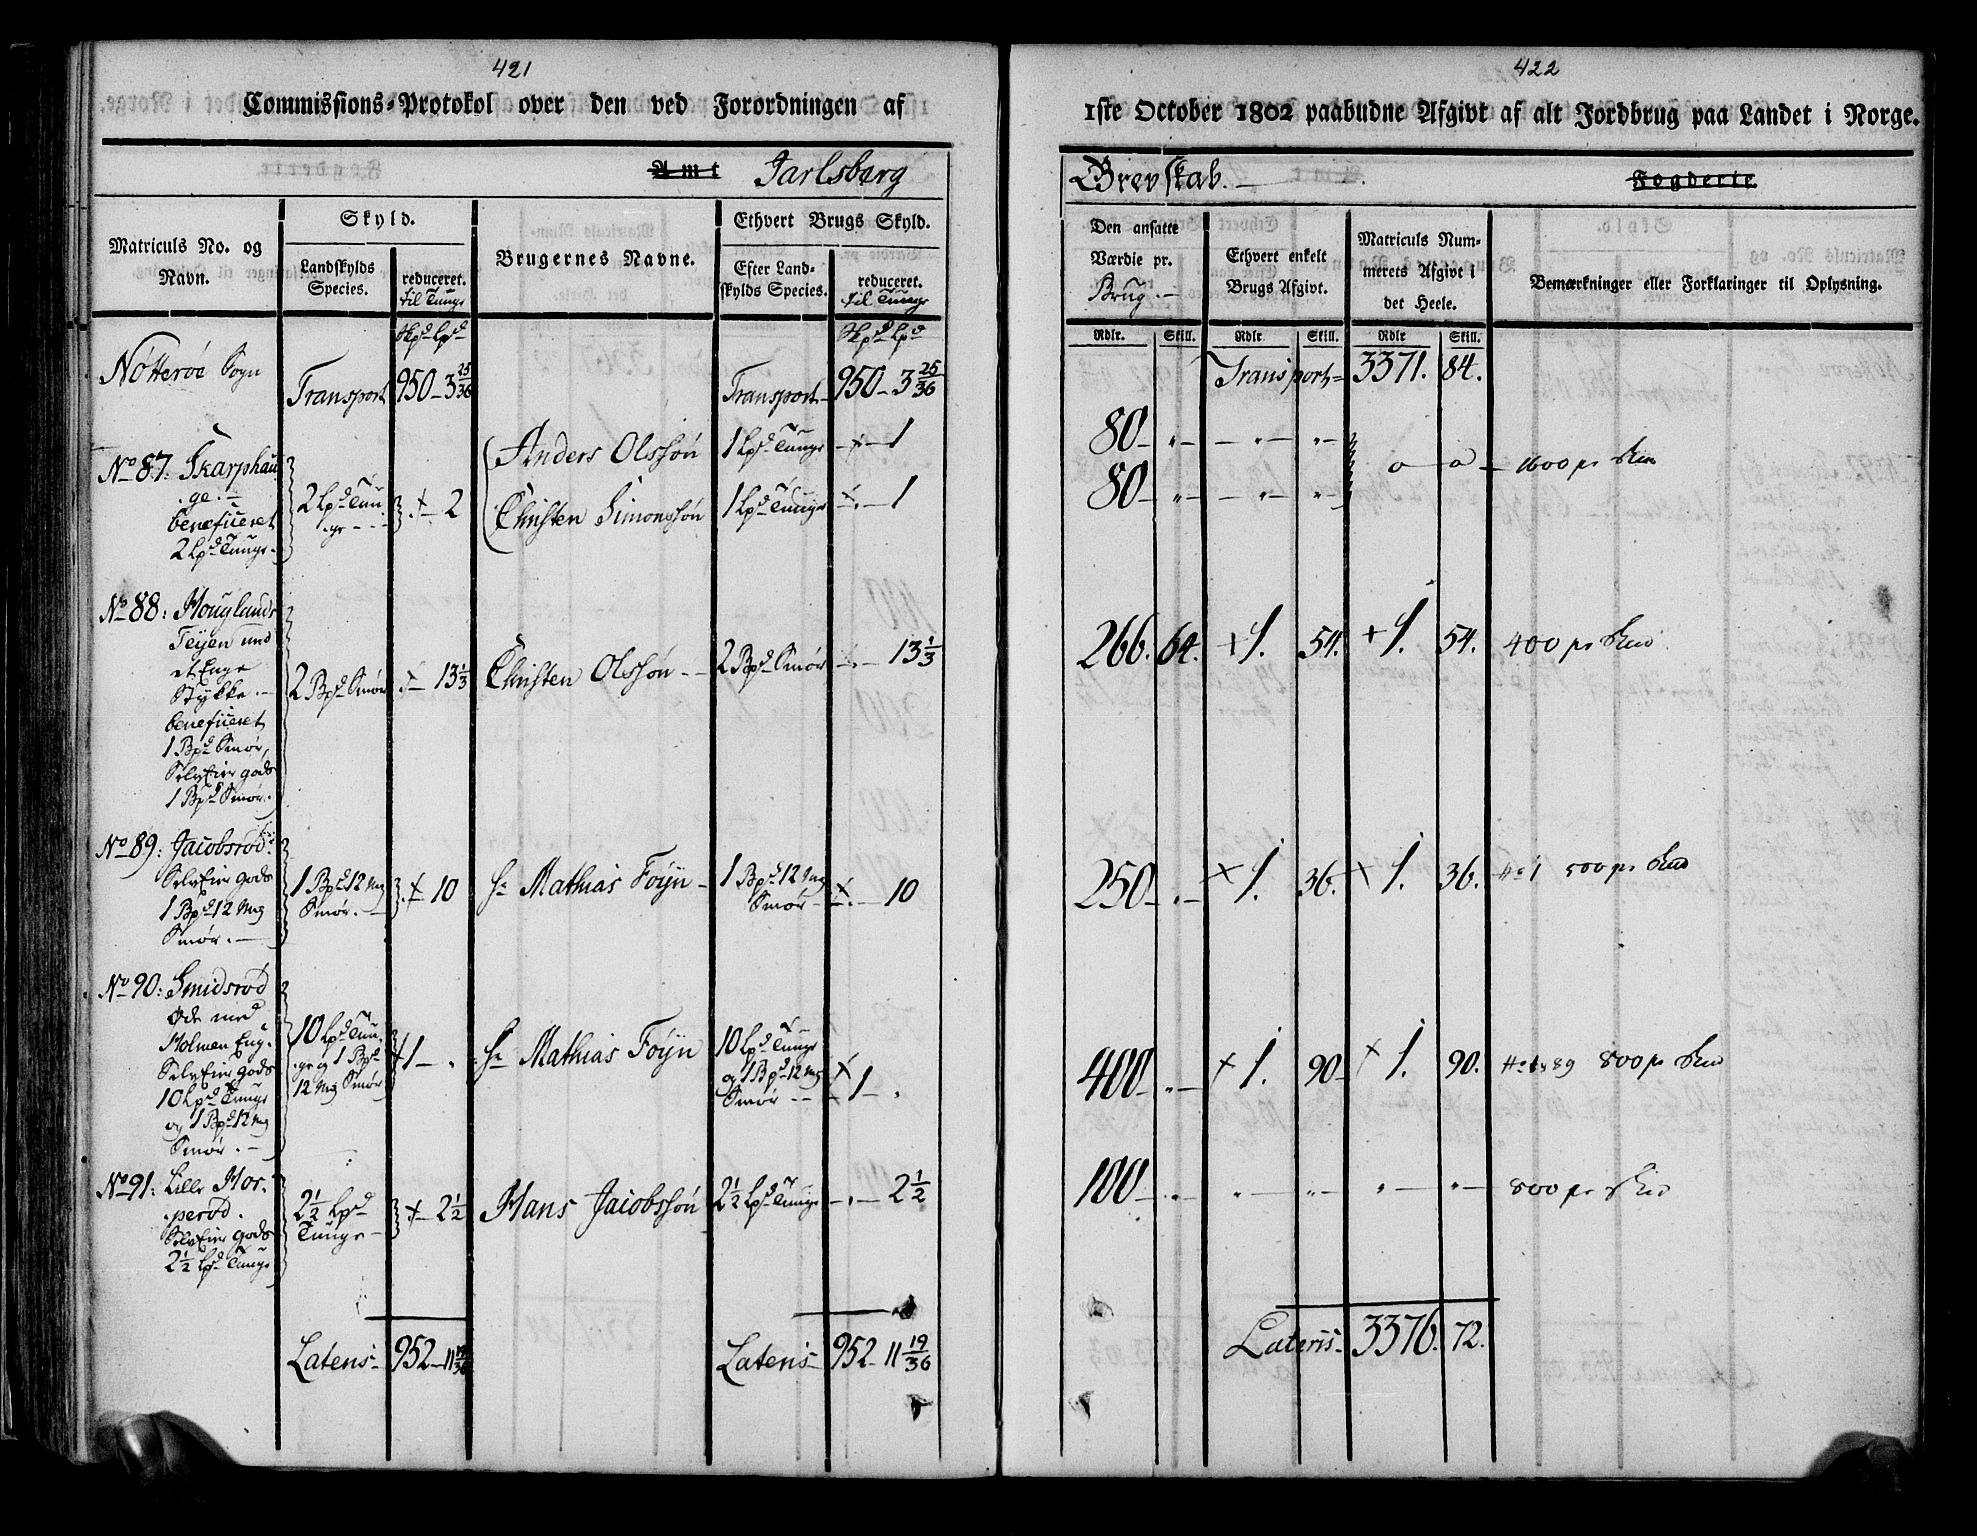 421
Commissions-Protokol over den ved Forordningen af
Amt Jarlsberg
Matriculs No. og
Navn.
Skyld.
Landskylds
Species.
reduceret.
til Tunge
Brugernes Navne.
Ethvert Brugs Skyld.
Efter Land-
skylds Species.
reduceret.
til Tunge
Skpd Lpd
Skpd Lpd
Nøtterøe Sogn
Transport 950 – 3 25/36
Transport 950 – 3 25/36
No 87: Skarphau
ge.
beneficeret
2 Lpd Tunge
2 Lpd Tun
ge
2
Anders Olssøn 1 Lpd Tunge 1
Christen Simonssøn 1 Lpd Tunge 1
No 88: Houglands
Teyen med
et Enge
Stykke
beneficeret
1 Bpd Smør,
SelvEier gods
1 Bpd Smør.
2 Bpd Smør 13 1/3 Christen Olssøn 2 Bpd Smør 13 1/3
No 89: Jacobsrød
SelvEier gods
1 Bpd 12 Mg
Smør.
1 Bpd 12 Mg
Smør.
10
Hr Mathias Føyn
1 Bpd 12 Mg
Smør
10
No 90: Smidsrød
Øde med
Holmen Eng
SelvEier gods
10 Lpd Tunge
og 1 Bpd 12 Mg
Smør.
10 Lpd Tun
ge og 1 Bpd
12 Mg Smør
1
Hr Mathias Føyn
10 Lpd Tunge
og 1 Bpd 12 Mg
Smør
1
No 91: Lille Hor-
perød.
SelvEier gods
2 1/2 Lpd Tunge
2 1/2 Lpd
Tunge
2 1/2
Hans Jacobssøn 2 1/2 Lpd Tunge 2 1/2
Lateris 952 – 11 19/36
Lateris 952 – 11 19/36
422
1ste October 1802 paabudne Afgivt af alt Jordbrug paa Landet i Norge.
Grevskab.
Fogderie.
Den ansatte
Værdie pr.
Brug.
Ethvert enkelt
Brugs Afgivt.
Matriculs Num-
merets Afgivt i
det Heele.
Bemærkninger eller Forklaringer til Oplysning.
Rdlr. Skill. Rdlr Skill. Rdlr Skill.
Transport 3371. 84.
80
80
1600 pr Skd
266. 64. 1. 54. 1. 54. 400 pr Skd
250 1. 36. 1. 36. 500 pr Skd
400 1. 90 1. 90. 89 800 pr Skd
100 800 pr Skd
Lateris 3376. 72.